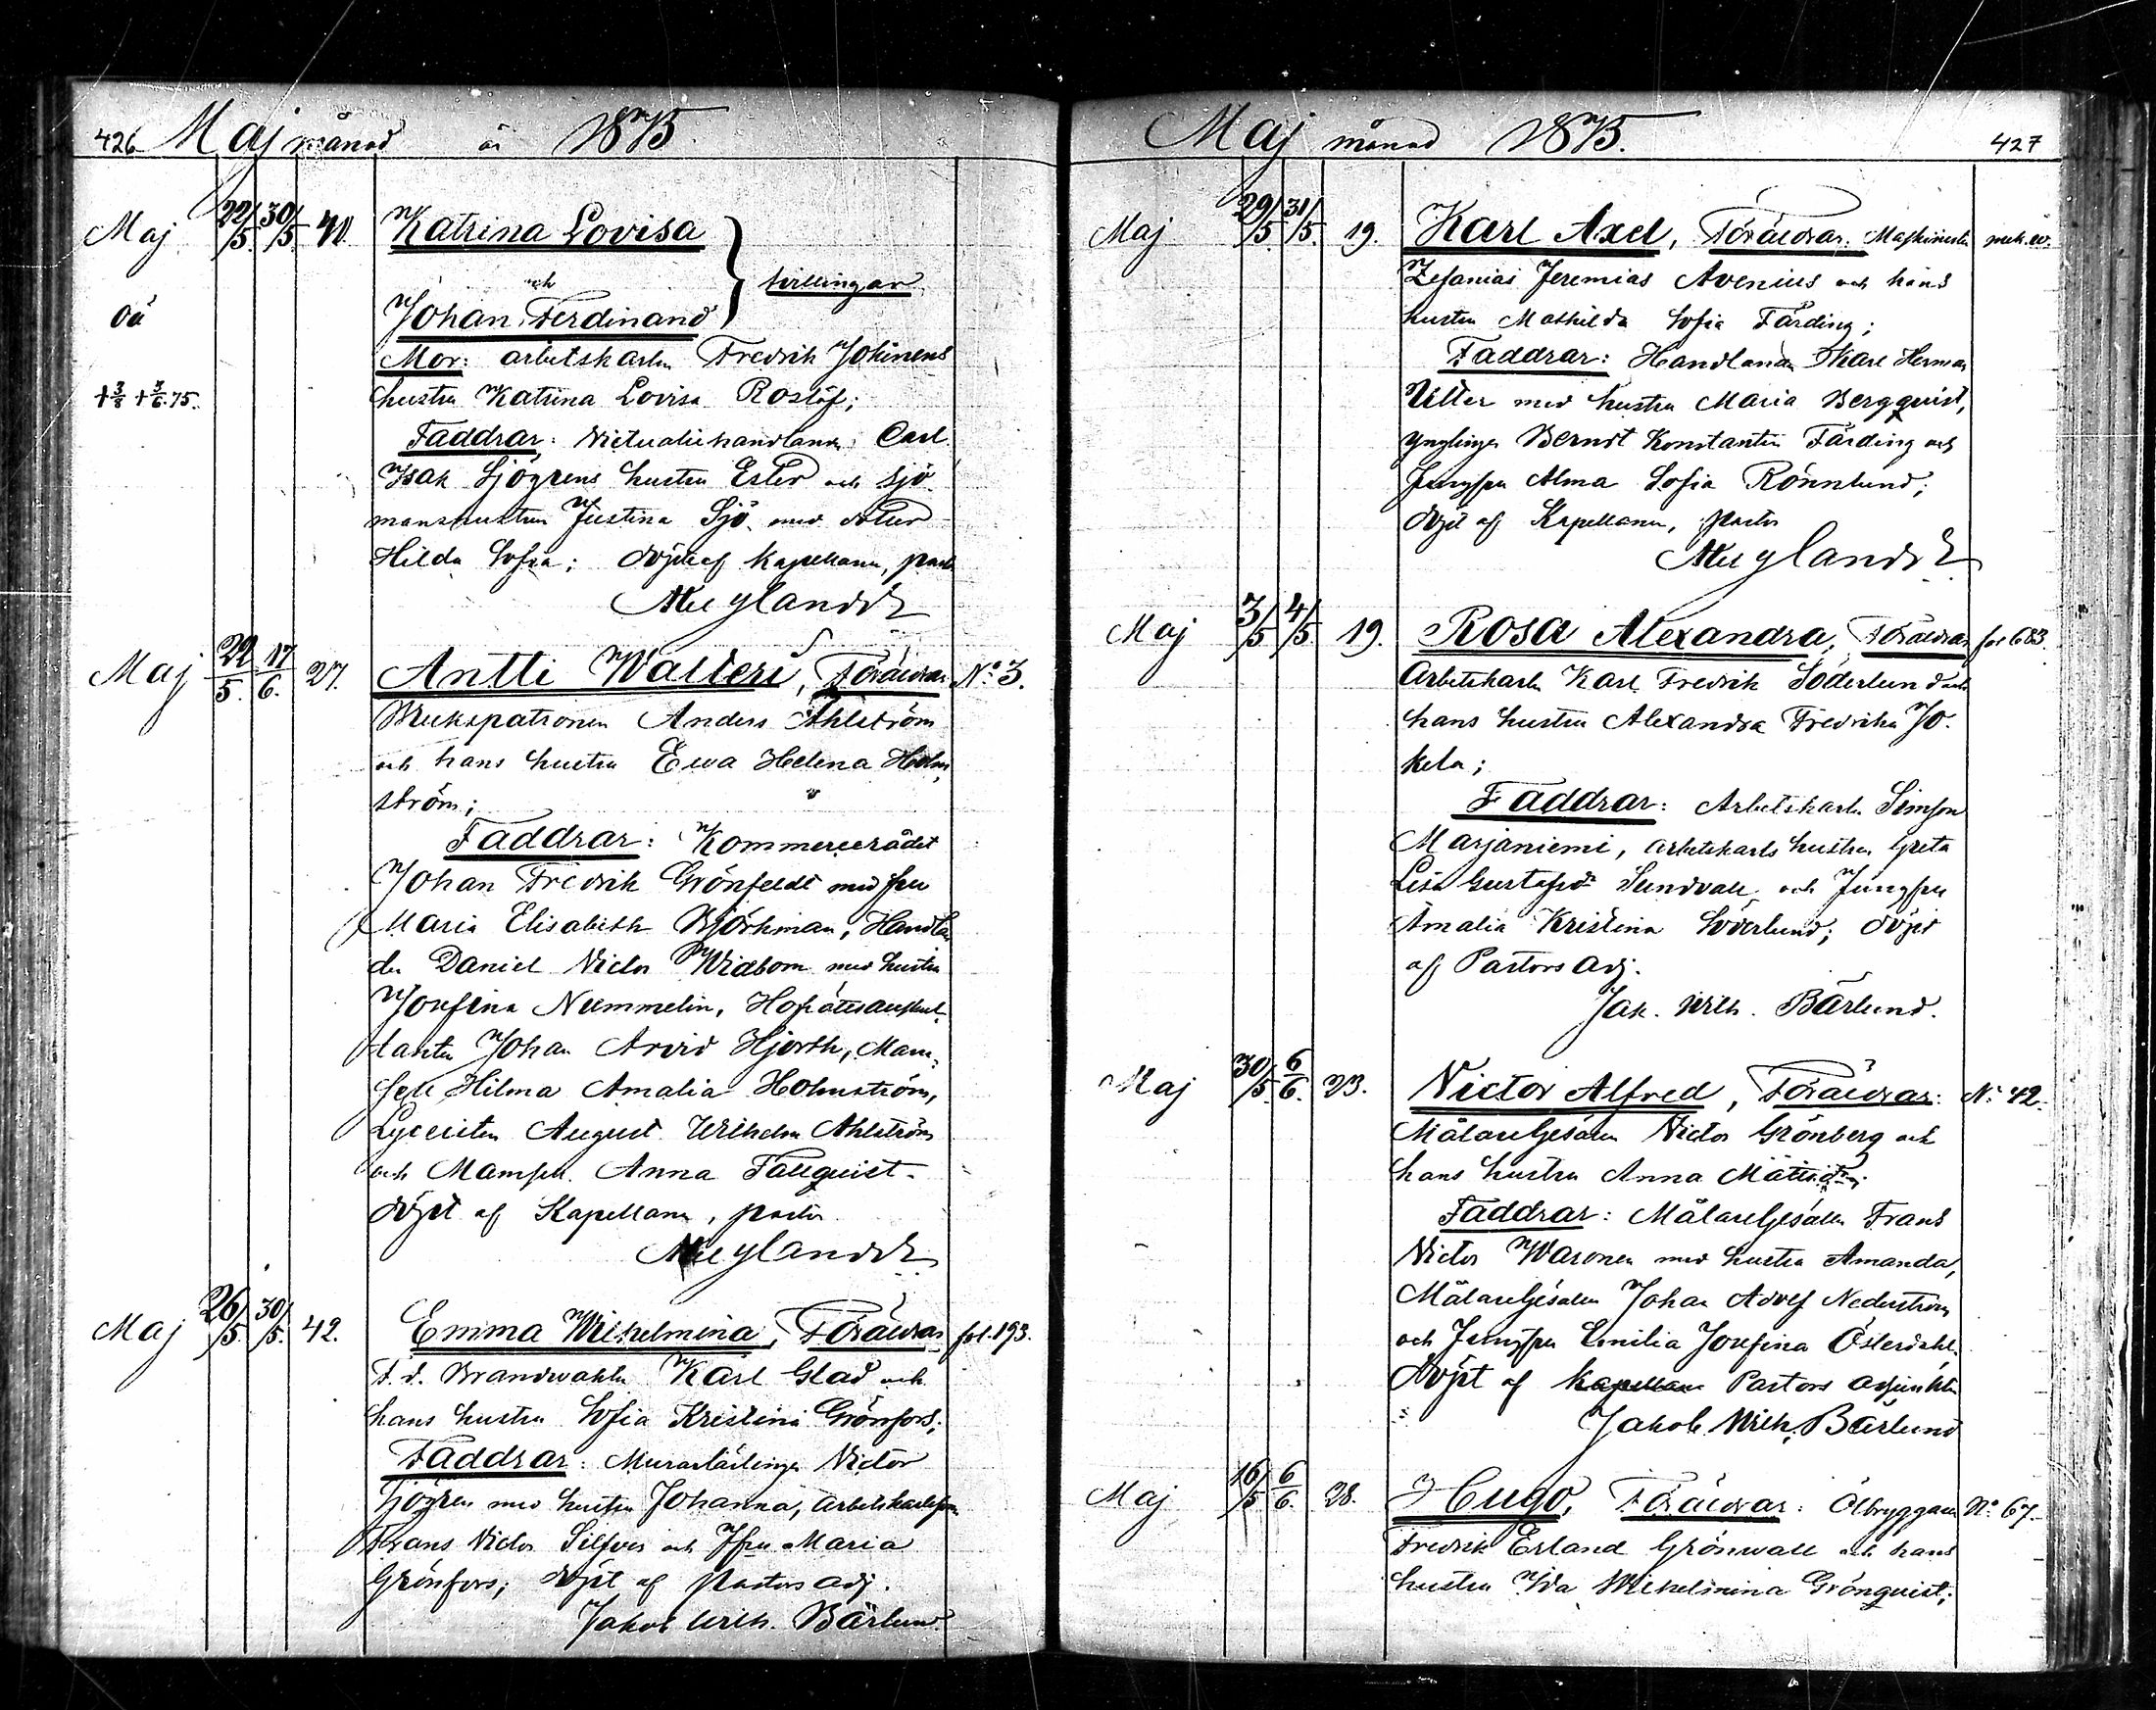 426 Maj månad år 1875.
Maj 22/5 30/5 41. Katrina Lovisa
och } tvillingar
oä Johan Ferdinand
Mor: arbetskarlen Fredrik Jokinens
+3/6 +3/6.75. hustru Katrina Lovisa Roslöf;
Faddrar: Victualiehandlaren Carl
Isak Sjögrens hustru Ester och Sjö-
manshustrun Justina Sjö med dotter
Hilda Sofia; döpte af Kapellanen, pastor
Nylander
Maj 22/5. 17/6. 27. Antti Walteri, Föräldrar No 3.
Brukspatronen Anders Ahlström
och hans hustru Ewa Helena Holm-
ström;
Faddrar: Kommercerådet
Johan Fredrik Grönfeldt med fru
Maria Elisabeth Björkman, Handlan-
den Daniel Victor Widbom med hustru
Josefina Nummelin, Hofrättsauskul-
tanten Johan Arvid Hjorth, Mam-
sell Hilma Amalia Holmström,
Lyceisten August Wilhelm Ahlström
och Mamsell Anna Fallquist -
döpt af Kapellanen, pastor
Nylander
Maj 26/5. 30/5. 42. Emma Wilhelmina, Föräldrar fol. 193.
F. d. Brandvakten Karl Glad och
hans hustru Sofia Kristina Grönfors;
Faddrar: Murarlärlingen Victor
Sjögren med hustru Johanna, arbetskarlsson
Frans Victor Silfver och Jfru Maria
Grönfors; döpt af pastors adj.
Jakob Wilh. Bärlund.
Maj månad 1875. 427
Maj 29/5. 31/5. 19. Karl Axel, Föräldrar: Maskinisten mek. v.
Zefanias Jeremias Avenius och hans
hustru Mathilda Sofia Färding;
Faddrar: Handlanden Karl Herman
Vetter med hustru Maria Bergquist,
ynglingen Berndt Konstantin Färding och
Jungfru Alma Sofia Rönnlund;
döpt af Kapellanen, pastor
Nylander
Maj 3/5 4/5. 19. Rosa Alexandra, Föräldrar fol 683.
Arbetskarlen Karl Fredrik Söderlund och
hans hustru Alexandra Fredrika Jo-
kela;
Faddrar: Arbetskarlen Simson
Marjaniemi, arbetskarls hustrun Greta
Lisa Gustafsdr Sundvall och Jungfru
Amalia Kristina Söderlund; döpt
af Pastors adj.
Jak. Wilh. Bärlund.
Maj 30/5. 6/6. 23. Victor Alfred, Föräldrar: No 42.
Målaregesällen Victor Grönberg och
hans hustru Anna Mattsdr;
Faddrar: Målaregesällen Frans
Victor Waronen med hustru Amanda,
Målaregesällen Johan Adolf Nederström
och Jungfru Emilia Josefina Österdahl.
Döpt af kapellan Pastors adjunkten
Jakob Wilh. Bärlund
Maj 16/5 6/6. 28. Hugo, Föräldrar: Ölbryggaren No 67.
Fredrik Erland Grönwall och hans
hustru Ida Wilhelmina Grönquist;